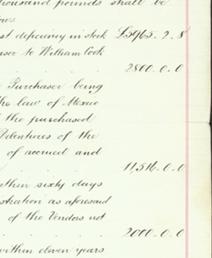 thousand pounds shall be
ows
st deficiency in Stock £5965. 2. 8
aser to William Cock
2800. 0. 0
Purchaser being
the law of Mexico
the purchased
Debentures of the
of accrued and
11,516. 0. 0
within sixty days
stration as aforesaid
of the Vendors not
2000. 0. 0
within eleven years